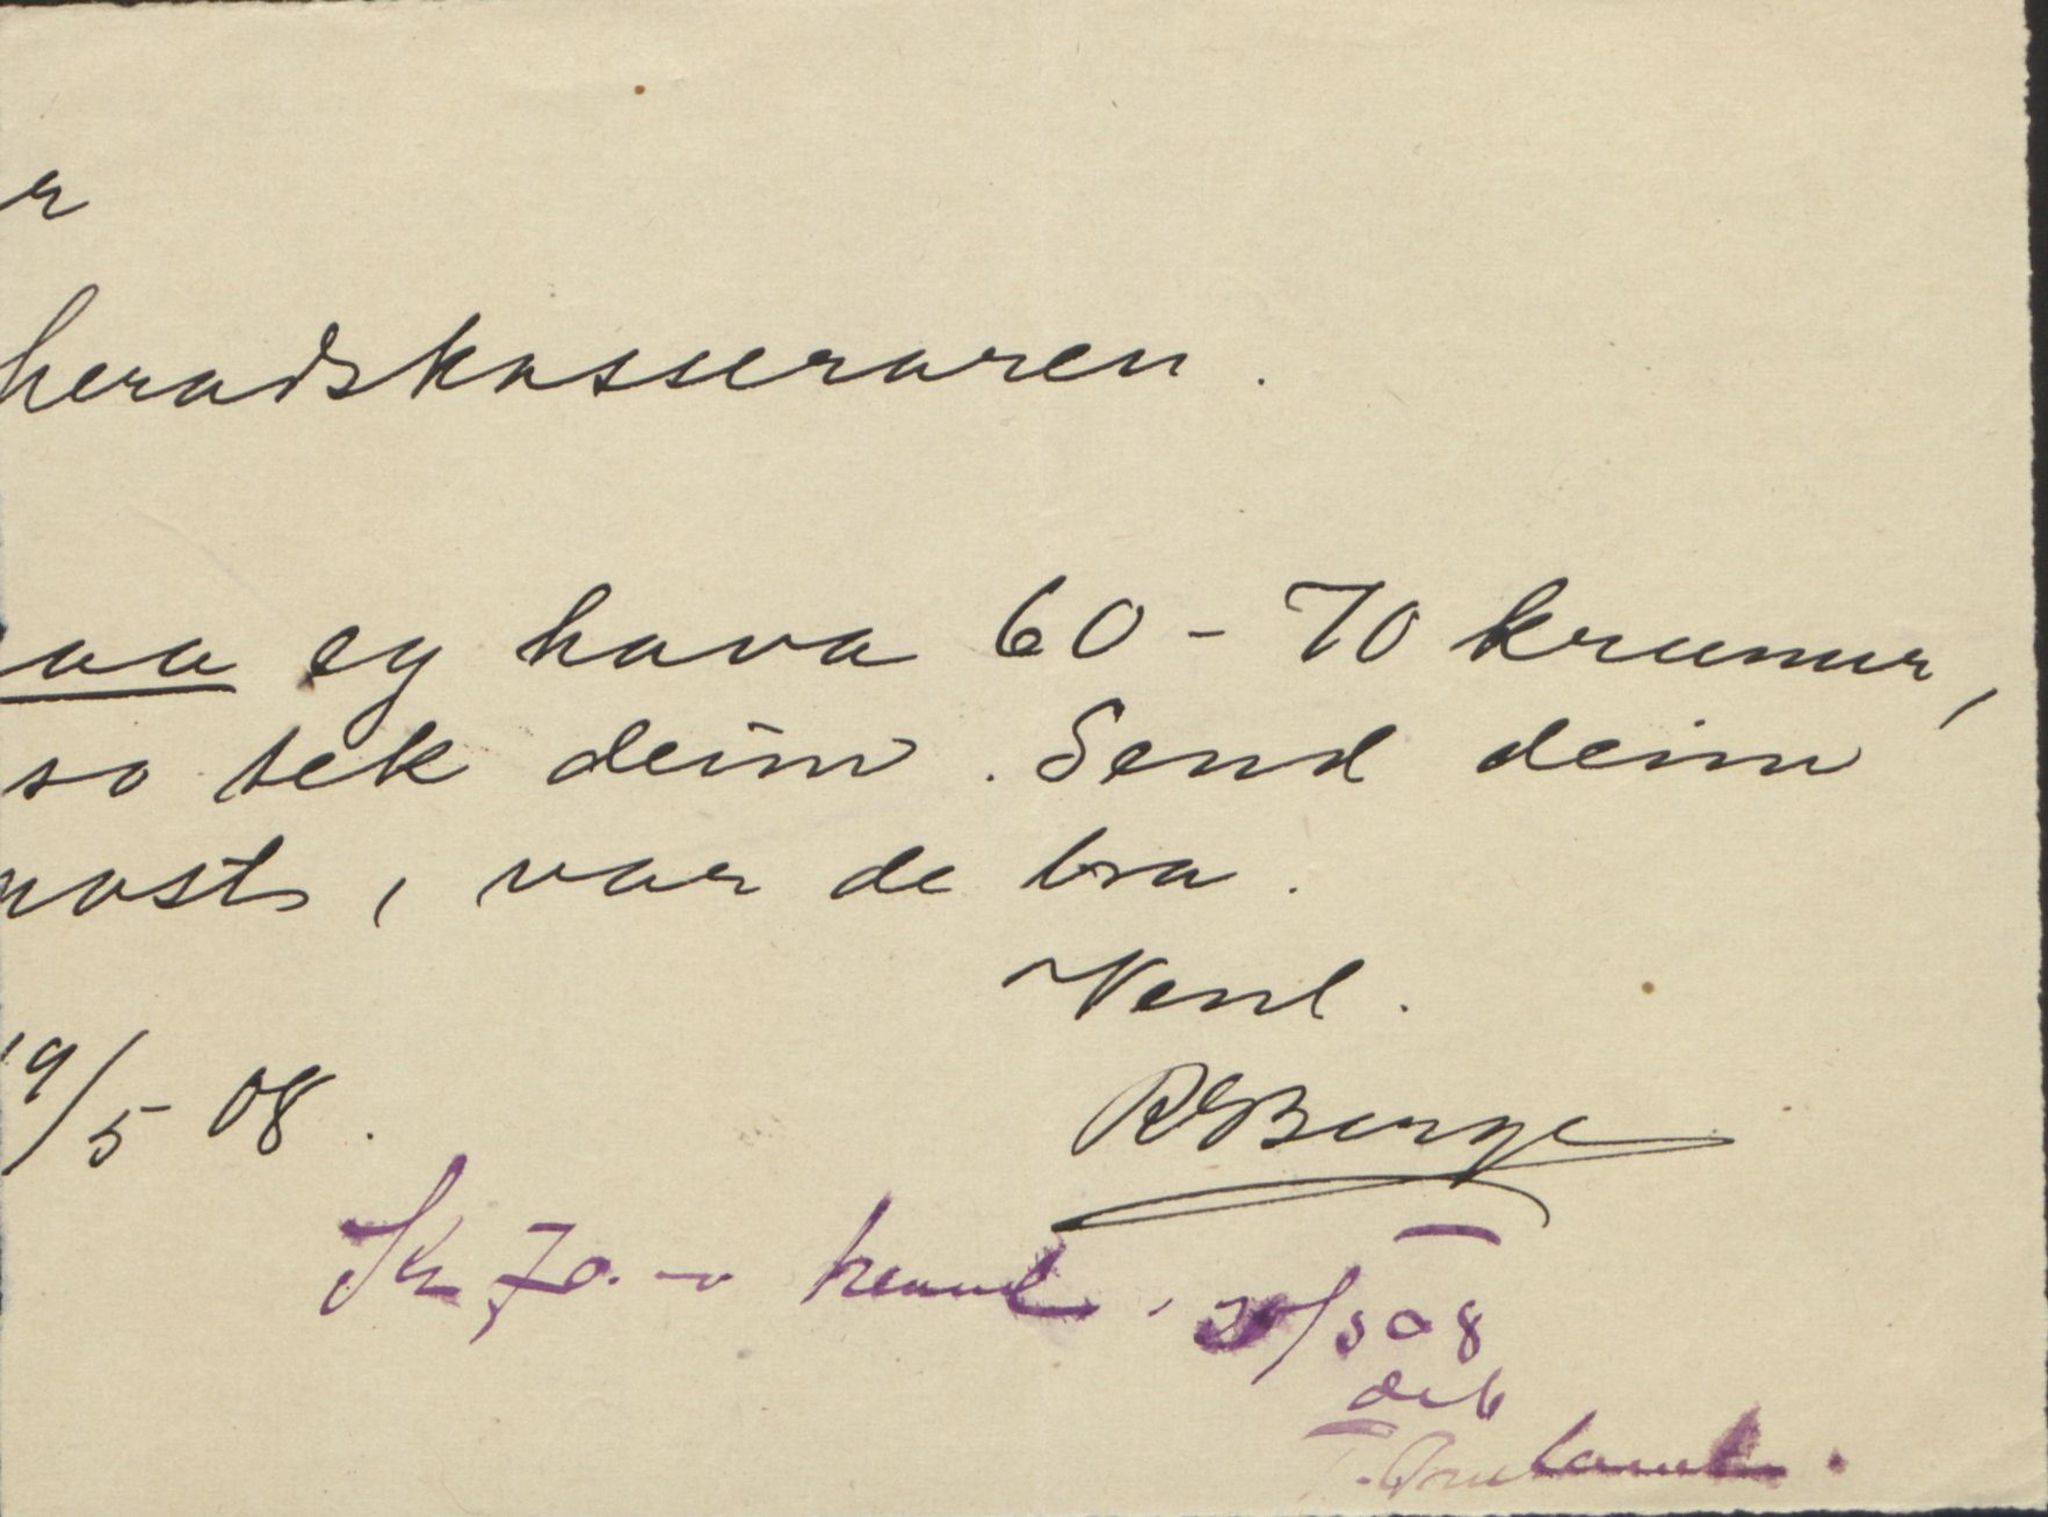 r
heradskasseraren.
aa eg hava 60-70 krunur,
so tek deim. Send deim
post, var de bra.
Venl.
19/5 08.
RSBerge
Kr 70.-
20/5 08